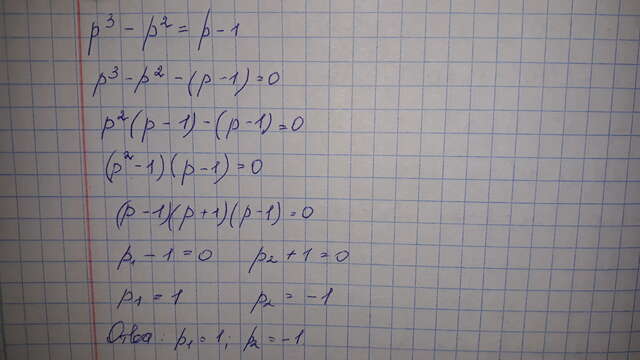 p³ - p² = p - 1
p³ - p² - (p - 1) = 0
p²(p - 1) - (p - 1) = 0
(p² - 1)(p - 1) = 0
(p - 1)(p + 1)(p - 1) = 0
p₁ - 1 = 0 p₂ + 1 = 0
p₁ = 1 p₂ = -1
Ответ: p₁ = 1; p₂ = -1